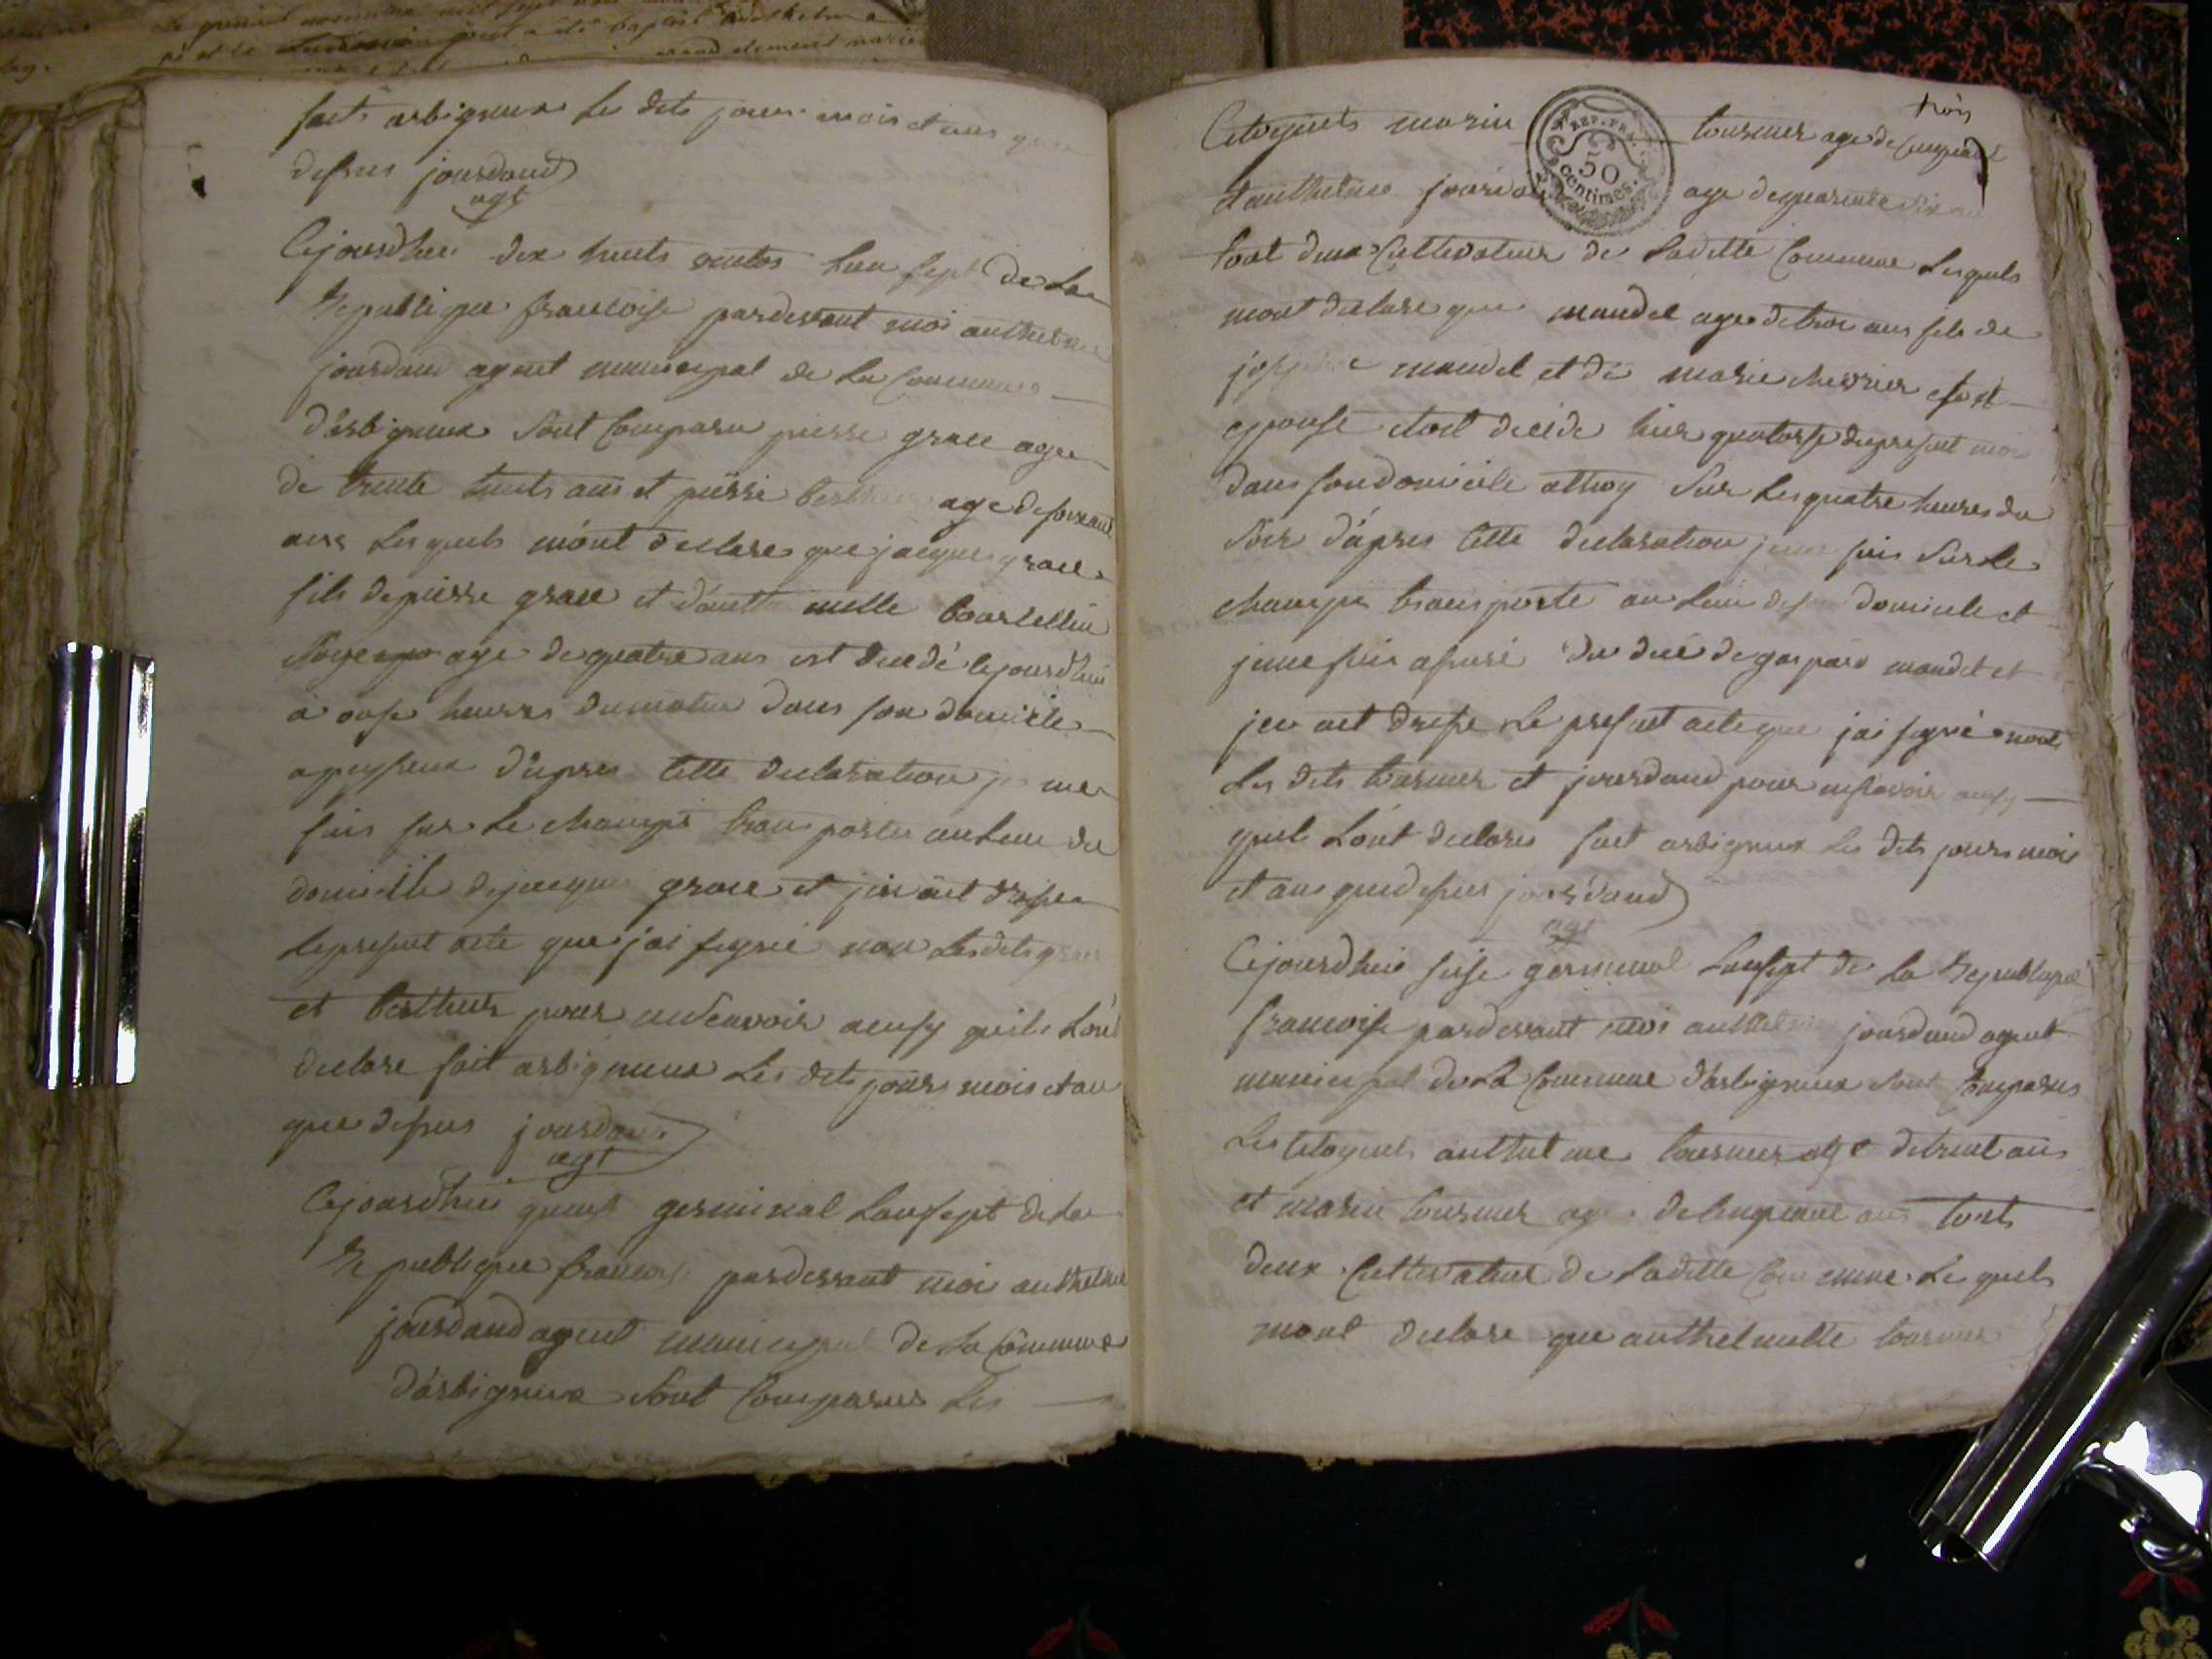 faits arbigneux les dits jours mois et ans que
desus jourdand
agt
Cejourdhui dix huits ventos lan sept de La
Republique francoise pardevant moi anthelme
jourdand agent municipal de La Commune
d'arbigneux sont Comparu pierre grace age
de trente huits ans et pierre berthier age de soixante
ans Lesquels m'ont declare que jacque grace
fils de pierre grace et d'anthelmette bourcellin
age de quatre ans est decedé cejourdhui
a onse heures du matin dans son domicile
a peysieux d'apres cette declaration je me
suis sur le champs transporter au lieu du
domicille de jacque grace et j'en ait drese
le present acte que j'ai signié non Les dits grace
et berthier pour ne scavoir ainsy quils L'ont
declare fait arbigneux Les dits jours mois et an
que desus jourdand
agt
Cejourdhui quinse germinal lan sept de La
Republique francoise pardevant moi anthelme
jourdand agent municipal de La Commune
d'arbigneux sont Comparus Les
trois
Citoyens marin tournier age de cinquante
REP. FRA.
50
centimes
et anthelme jourdand age de quarante six ans
tout deux Cultivateur de Laditte Commune Lesquels
mont declare que mandel age de trois ans fils de
joseph mandel et de marie chevrier
epouse etoit decede hier quatorse du present mois
dans son domicile a thoy sur Les quatre heures du
soir d'apres cette declaration je me suis sur le
champs transporté au lieu de son domicile et
je me suis asuré du decé de gaspard mandel et
jen ait drese le present acte que jai signié non
Les dits tournier et jourdand pour ne scavoir ainsy
quil L'ont declare fait arbigneux Les dits jours mois
et ans que desus jourdand
agt
Cejourdhui seise germinal Lan sept de La Republique
francoise pardevant moi anthelme jourdand agent
municipal de La Commune d'arbigneux sont Comparus
Les Citoyens anthelme tournier age de trente ans
et marin tournier age de cinquante ans touts
deux Cultivateur de Laditte Commune Lesquels
mont declare que anthelmette tournier